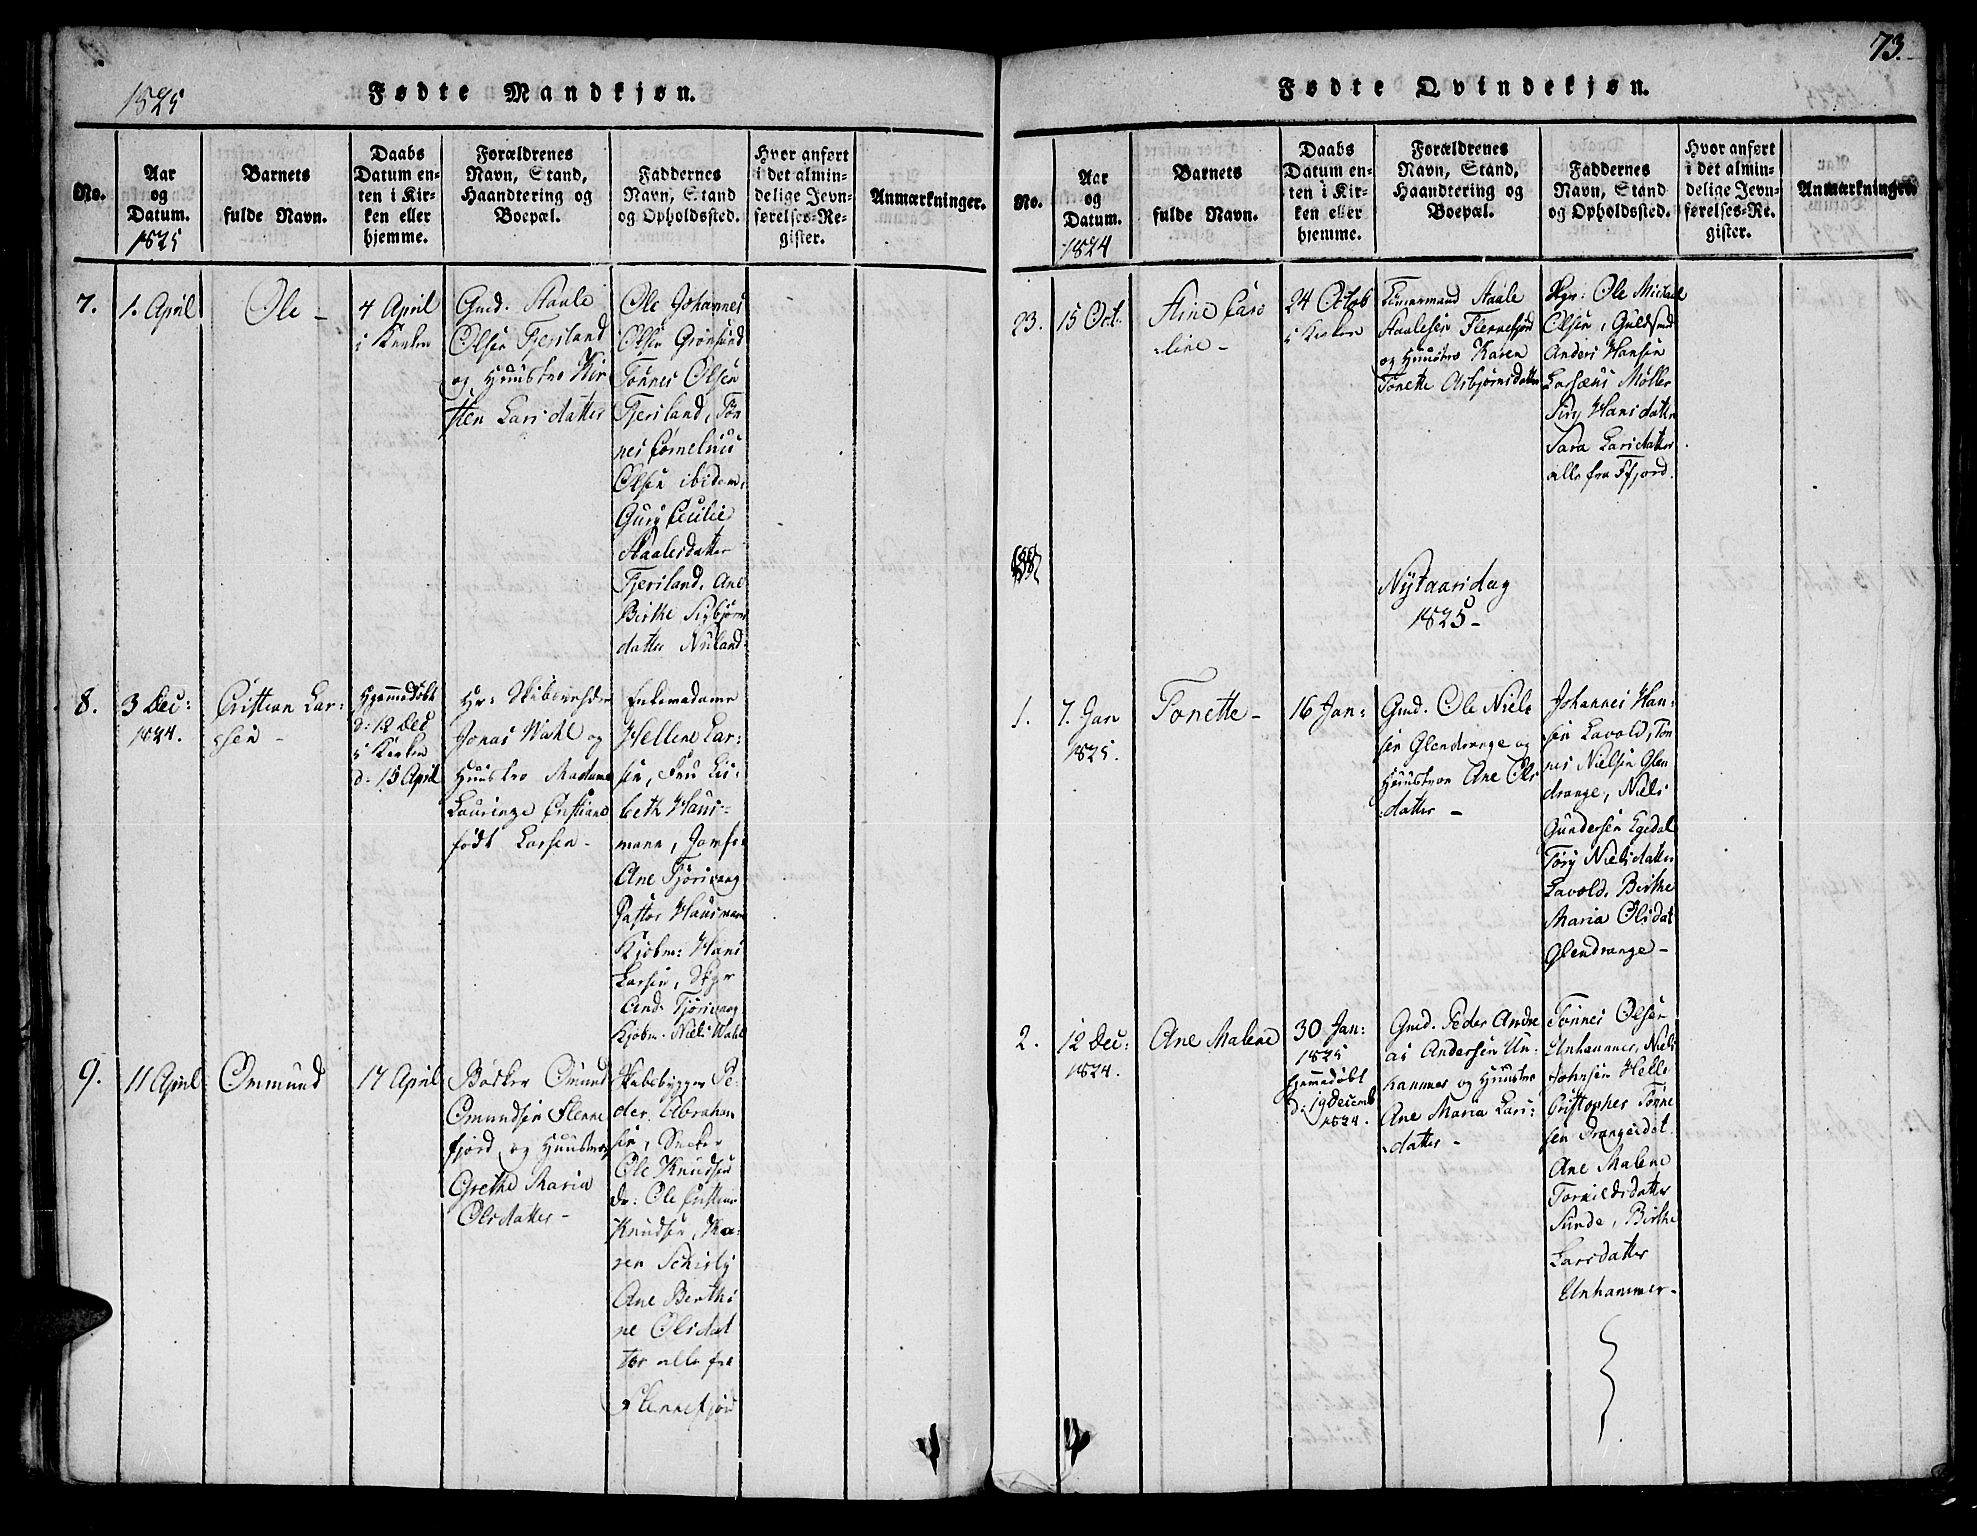 73.
1825
Fødte Mandkjøn.
No.
Aar
og
Datum.
1825
Barnets
fulde Navn.
Daabs
Datum en-
ten i Kir-
ken eller
hjemme.
Forældrenes
Navn, Stand,
Haandtering og
Boepæl.
Faddernes
Navn, Stand
og Opholdssted.
Hvor anført
i det almin-
delige Jevn-
førelses-Re-
gister.
Anmærkninger.
7.
1. April
Ole -
4 April
i Kirken
Gmd. Staale
Olsen Fjersland
og Huustro Kir
sten Larsdatter
Ole Johannes
Olsen Grønsund
Tønnes Olsen
Fjersland, Tøn
nes Cornelius
Olsen ibidem,
Gury Cecilie
Staalesdatter
Fjersland, Ane
Birthe Sigbjørns
datter Nuland
8.
3 Dec:
1824.
Cristian Lar-
sen -
Hjemmedøbt
d: 12 Dec
i Kirken
d: 15 April
Hr: Skibsrheder
Jonas Wahl og
Huustro Madame
Lauringe Cristiane
født Larsen -
Enkemadame
Hellene Lar-
sen, Fru Lis-
beth Haus-
mann, Jomfr:
Ane Tjørsvaag
Pastor Hausmann
Kjøbm: Hans
Larsen, Skpr
And. Tjørsvaag
Kjøbm. Niels Wahl
9.
11 April
Ommund
17 April
Bødker Omund
Omundsen Flekke
fjord og Huustroe
Grethe Maria
Olsdatter -
Skibsbygger Pe-
der Abraham
sen, Sneker
Ole Knudsen
do: Ole Cristian
Knudsen, Ka-
ren
Ane Berthi
ne Olsdat
ter alle fra
Flekkefjord
Fødte Qvindekjøn.
No.
Aar
og
Datum.
1824
Barnets
fulde Navn.
Daabs
Datum en-
ten i Kir-
ken eller
hjemme.
Forældrenes
Navn, Stand,
Haandtering og
Boepæl.
Faddernes
Navn, Stand
og Opholdssted.
Hvor anført
i det almin-
delige Jevn-
førelses-Re-
gister.
Anmærkninger.
23.
15 Oct.
Stine Caro
line -
24 Octob
i Kirken
Tømermand Staale
Staalesen Flekkefjord
og Huustro Karen
Tonette Asbjørnsdatter
Skpr: Ole Michael
Olsen, Guldsmd
Anders Hansen
Møller
Siry Hansdatter
Sara Larsdatter
alle fra Ffjord.
Nytaarsdag
1825 -
1.
7. Jan
1825.
Tonette -
16 Jan:
Gmd. Ole Niels
sen Glendrange og
Huustroe Ane Ols
datter -
Johannes Han-
sen Lavold, Tøn
nes Nielsen Glen
drange, Niels
Gundersen Egedal
Tory Nielsdatter
Lavold, Birthe
Maria Olsdat
Glendrange -
2.
12 Dec:
1824.
Ane Malene
30 Jan:
1825
hjemmedøbt
d: 19 Decemb
1824.
Gmd. Peder Andre
as Andersen Un-
hammer og Huustro
Ane Maria Lars-
datter -
Tønnes Olsen
Unhammer, Niels
Johnsen Helle
Cristopher Tønne
sen Drangeidet
Ane Malene
Torkildsdatter
Sunde, Birthe
Larsdatter
Unhammer -